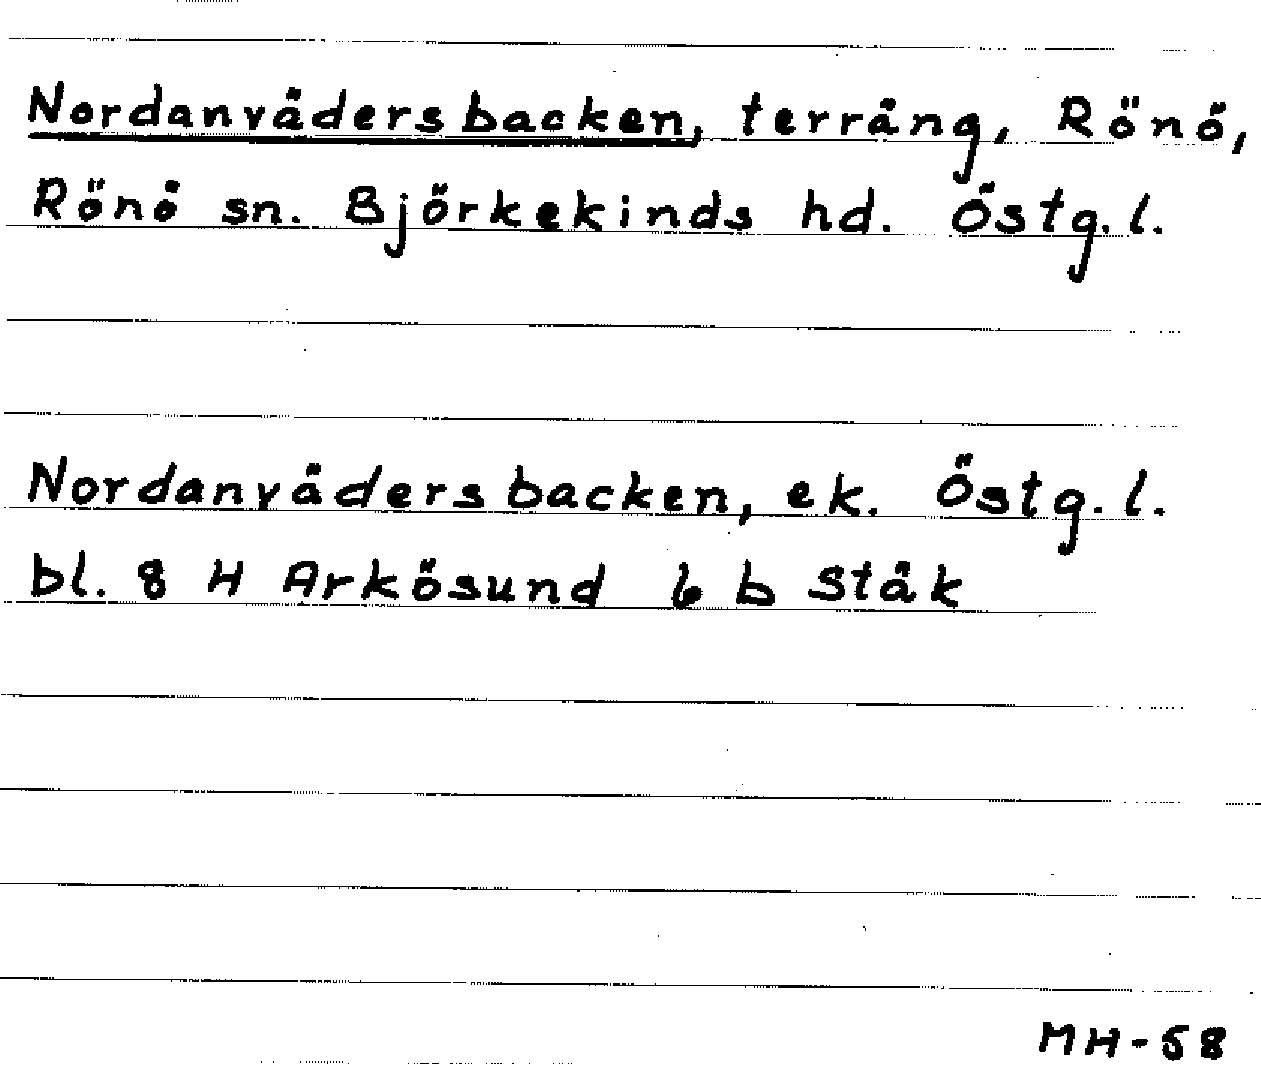 Nordanvädersbacken, terräng, Rönö,
Rönö sn. Björkekinds hd. Östg. l.
Nordanvädersbacken, ek. Östg. l.
bl. 8 H Arkösund 6 b Stäk
MH-58